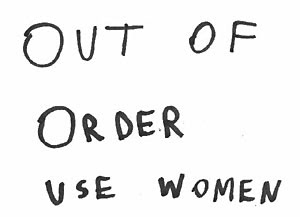 OUT OF
ORDER
USE WOMEN